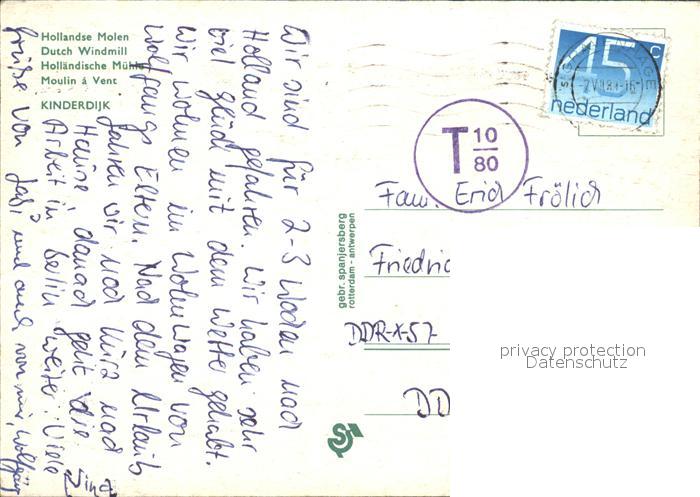 Hollandse Molen
Dutch Windmill
Holländische Mühle
Moulin á Vent
KINDERDIJK
Wir sind für 2-3 Wochen nach
Holland gefahren. Wir haben sehr
viel Glück mit dem Wetter gehabt.
Wir wohnen im Wohnwagen von
Wolfgangs Eltern. Nach dem Urlaub
fahren wir noch kurz nach
Hause, danach geht die
Arbeit in Berlin weiter. Viele
Grüße von und auch von mir, Wolfgang
gebr. spanjersberg
rotterdam - antwerpen
45 c
nederland
T 10
80
Fam. Erich Frölich
Friedric
DDR-X-57
DD
privacy protection
Datenschutz